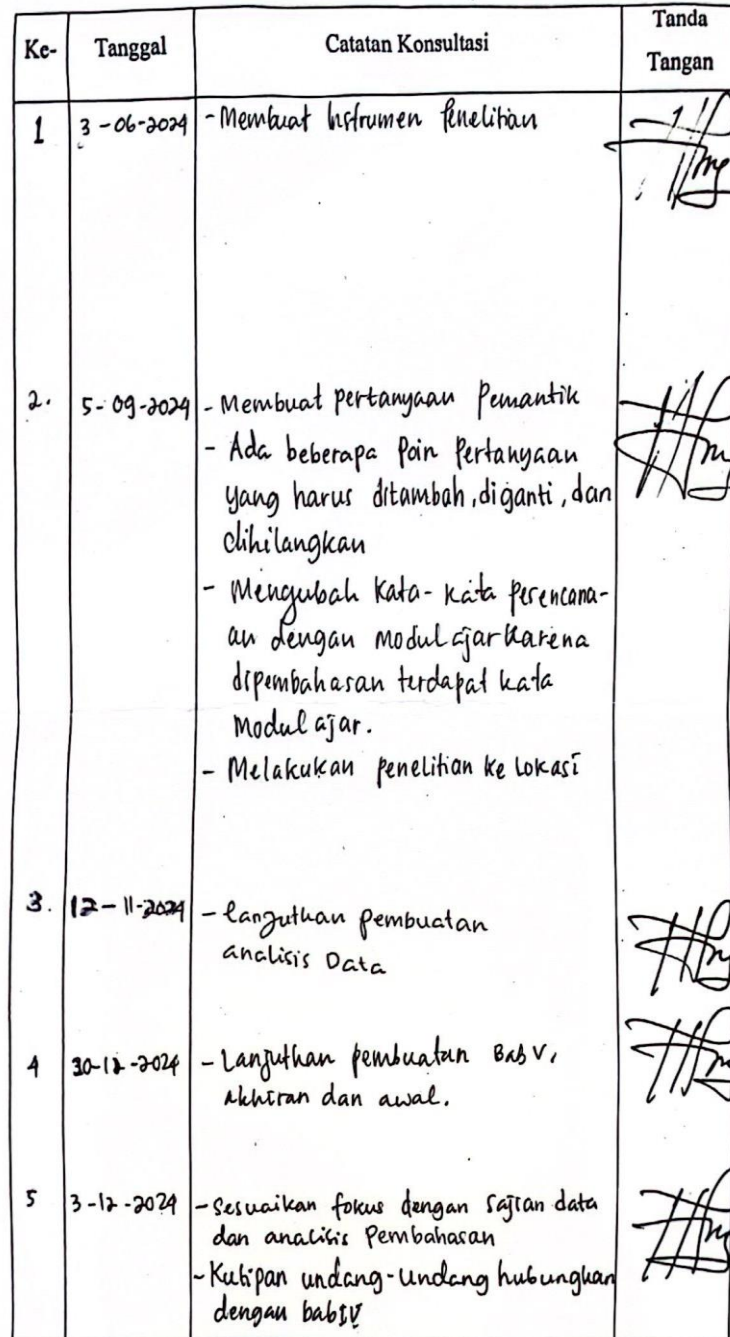 Ke- Tanggal Catatan Konsultasi Tanda Tangan
1 3-06-2024 - Membuat Instrumen Penelitian
2. 5-09-2024 - Membuat pertanyaan Pemantik
- Ada beberapa Poin Pertanyaan
yang harus ditambah, diganti, dan
dihilangkan
- Mengubah kata-kata perencana-
an dengan modul ajar karena
dipembahasan terdapat kata
Modul ajar.
- Melakukan penelitian ke Lokasi
3. 12-11-2024 - Lanjutkan pembuatan
analisis Data
4 30-12-2024 - Lanjutkan pembuatan Bab V,
akhiran dan awal.
5 3-12-2024 - Sesuaikan fokus dengan Sajian data
dan analisis Pembahasan
- Kutipan undang-undang hubungkan
dengan bab IV